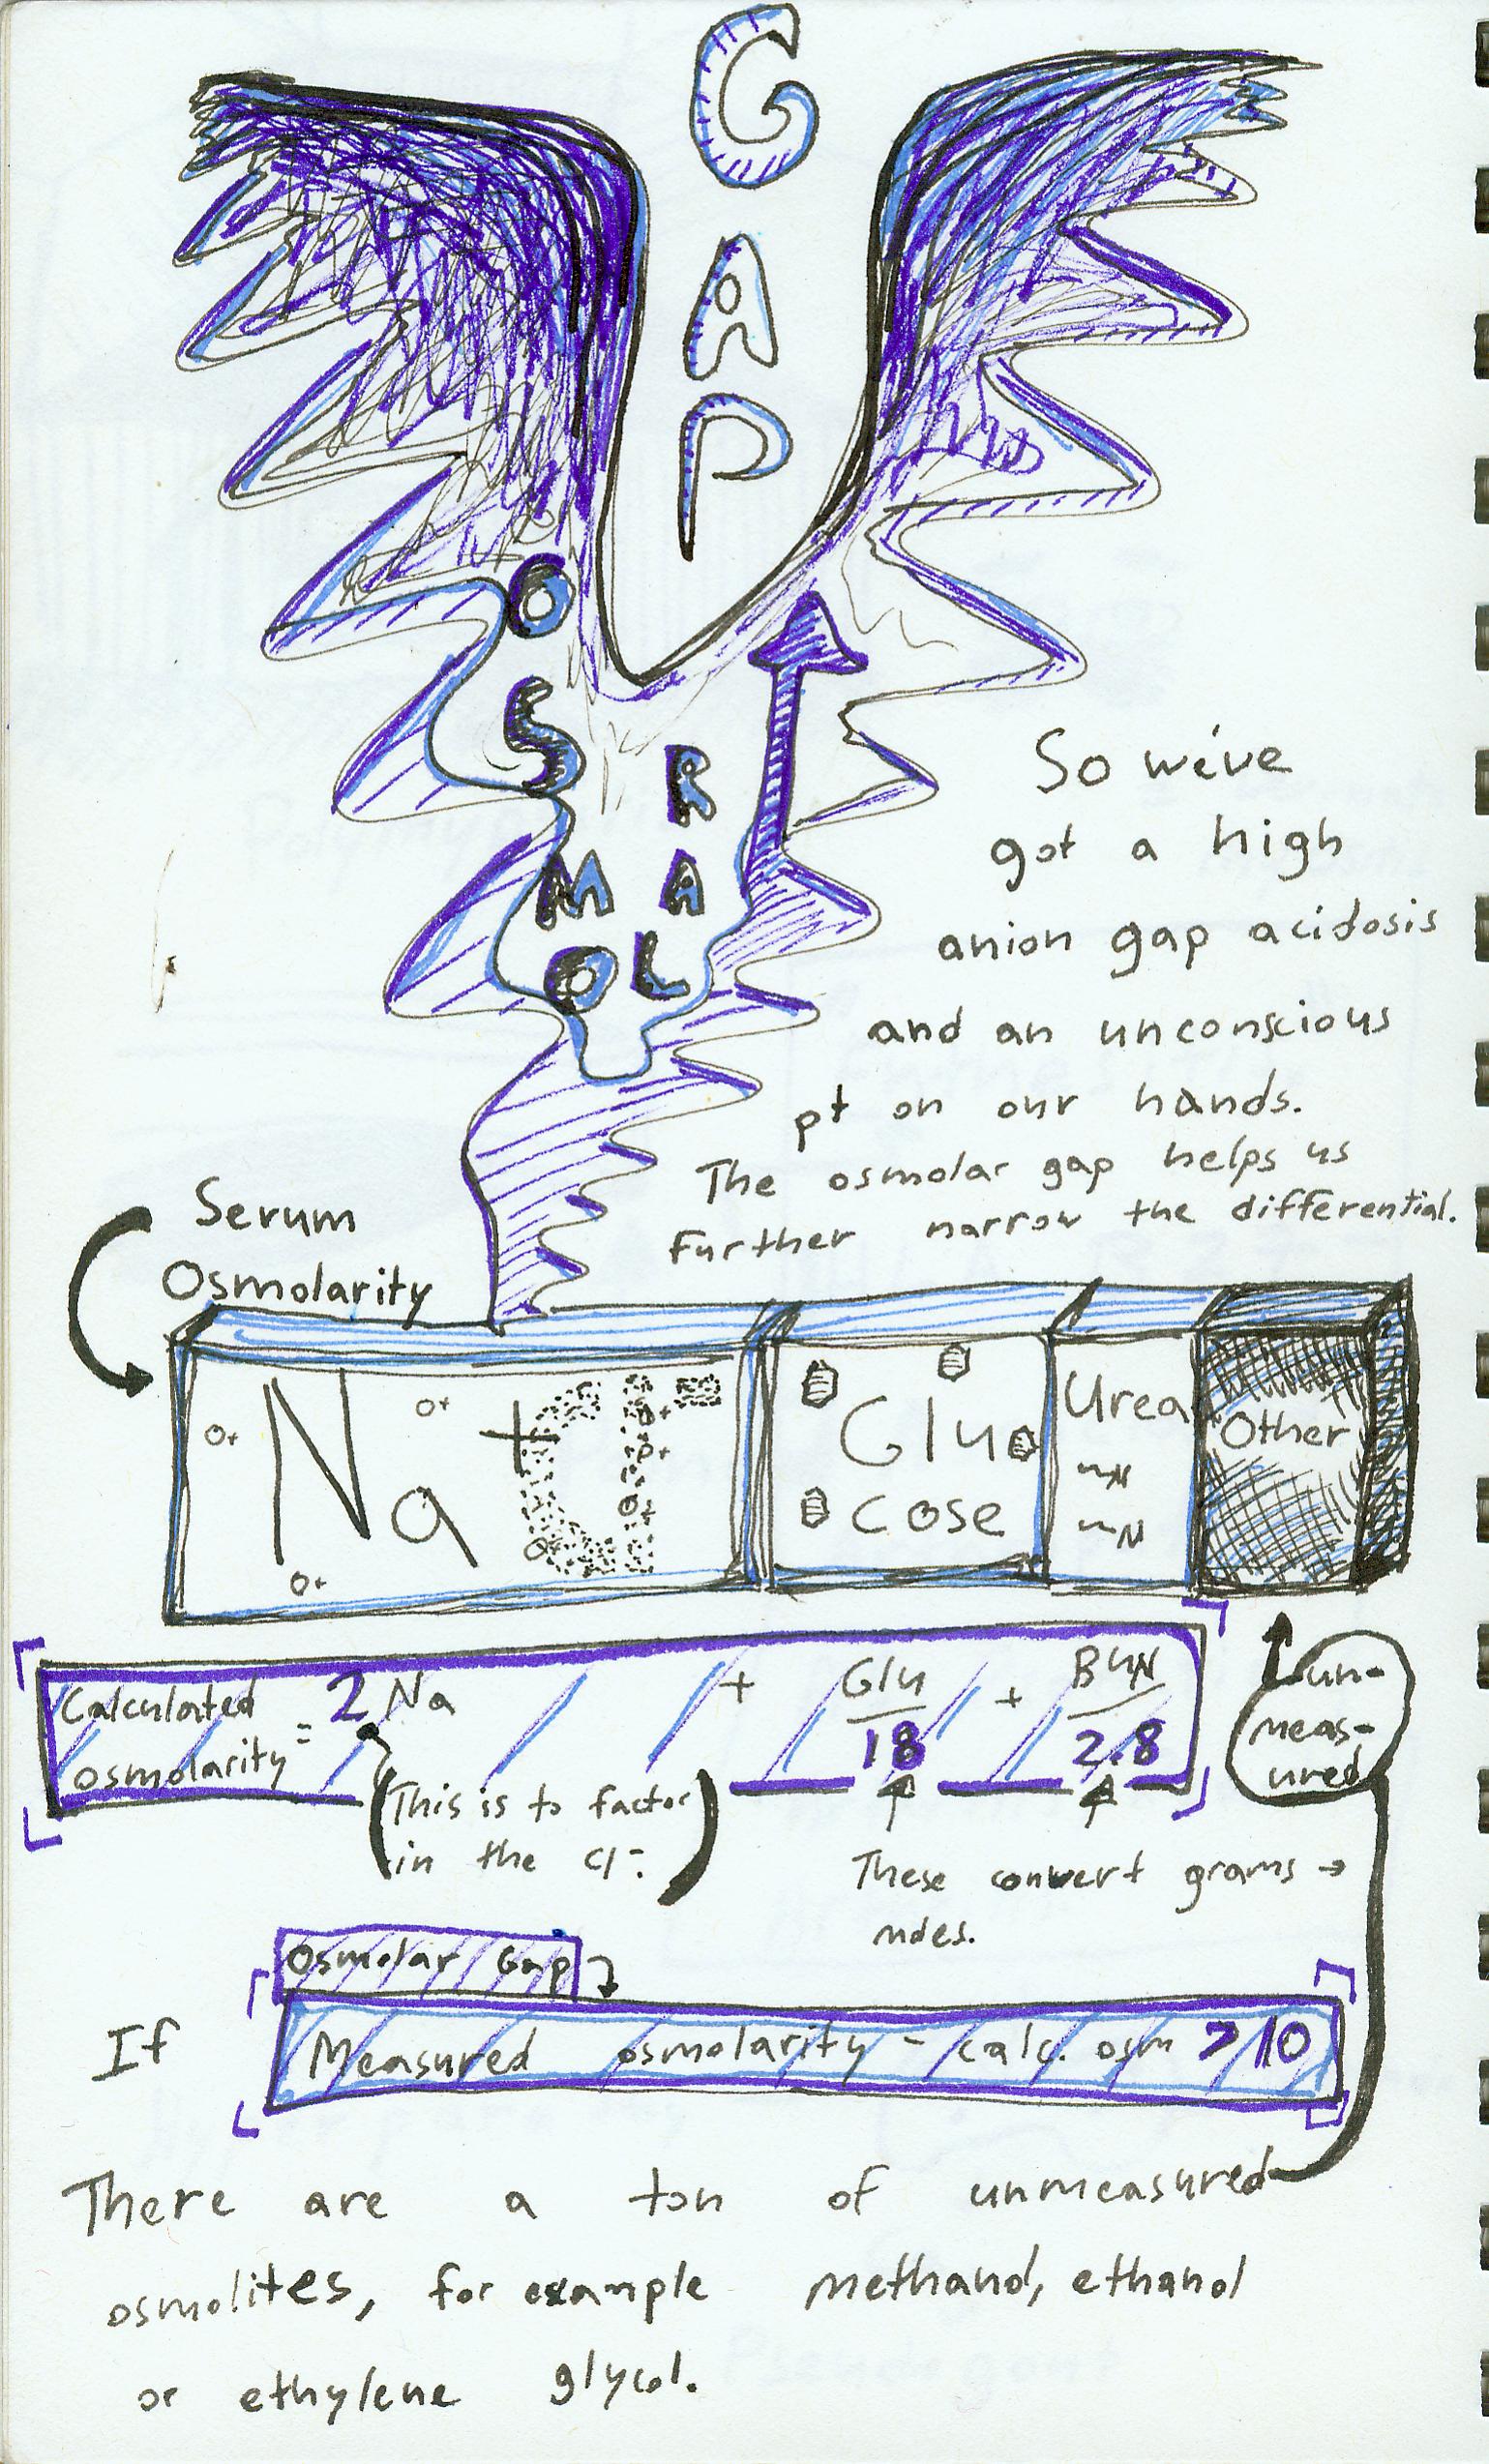 GAP
OSMO
LAR
So we've
got a high
anion gap acidosis
and an unconscious
pt on our hands.
The osmolar gap helps us
further narrow the differential.
Serum
Osmolarity
Na + Cl -
Glu
cose
Urea
Other
Calculated
osmolarity = 2 Na + Glu/18 + BUN/2.8
(This is to factor
in the Cl-.)
un-
meas-
ured
These convert grams →
moles.
Osmolar Gap
If Measured osmolarity - calc. osm > 10
There are a ton of unmeasured
osmolites, for example methanol, ethanol
or ethylene glycol.